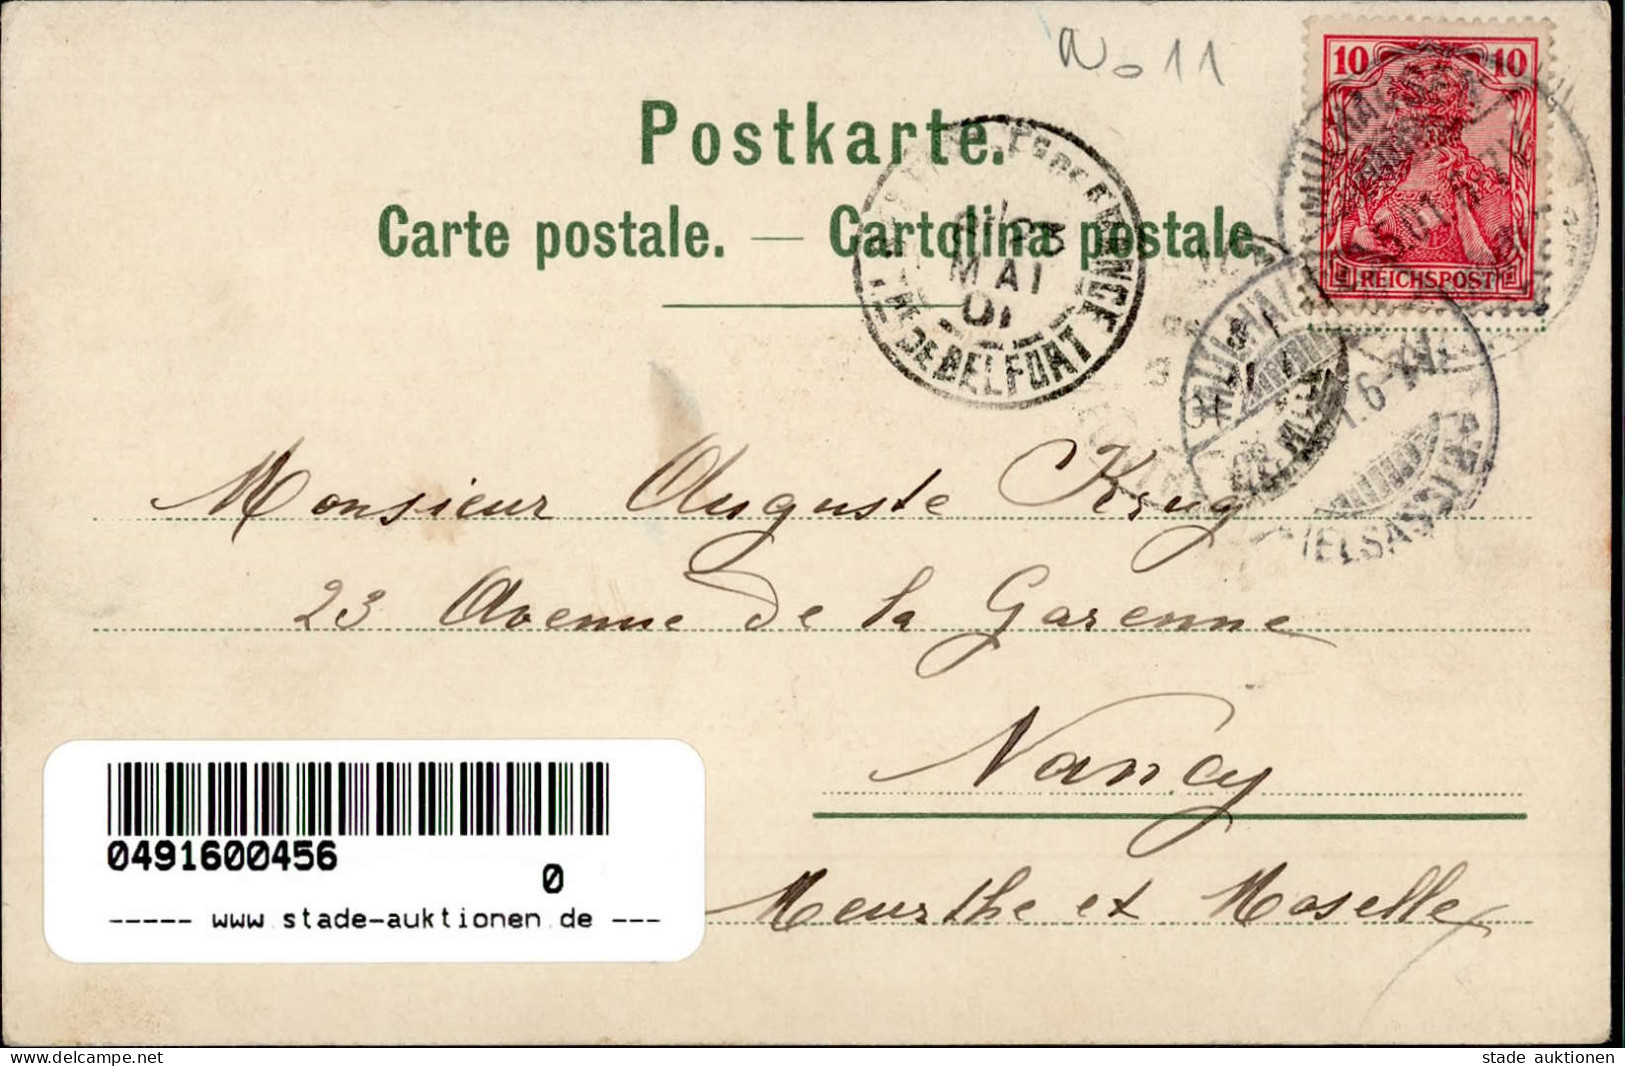 No 11
10 10
REICHSPOST
Postkarte.
Carte postale. — Cartolina postale.
MAI
01
DE BELFORT
MÜLHAUSEN
(ELSASS)
Monsieur Auguste Krug
23 Avenue de la Garenne
Nancy
Meurthe et Moselle
0491600456
0
----- www.stade-auktionen.de ---
the-postcard-marketplace.net
stade auktionen